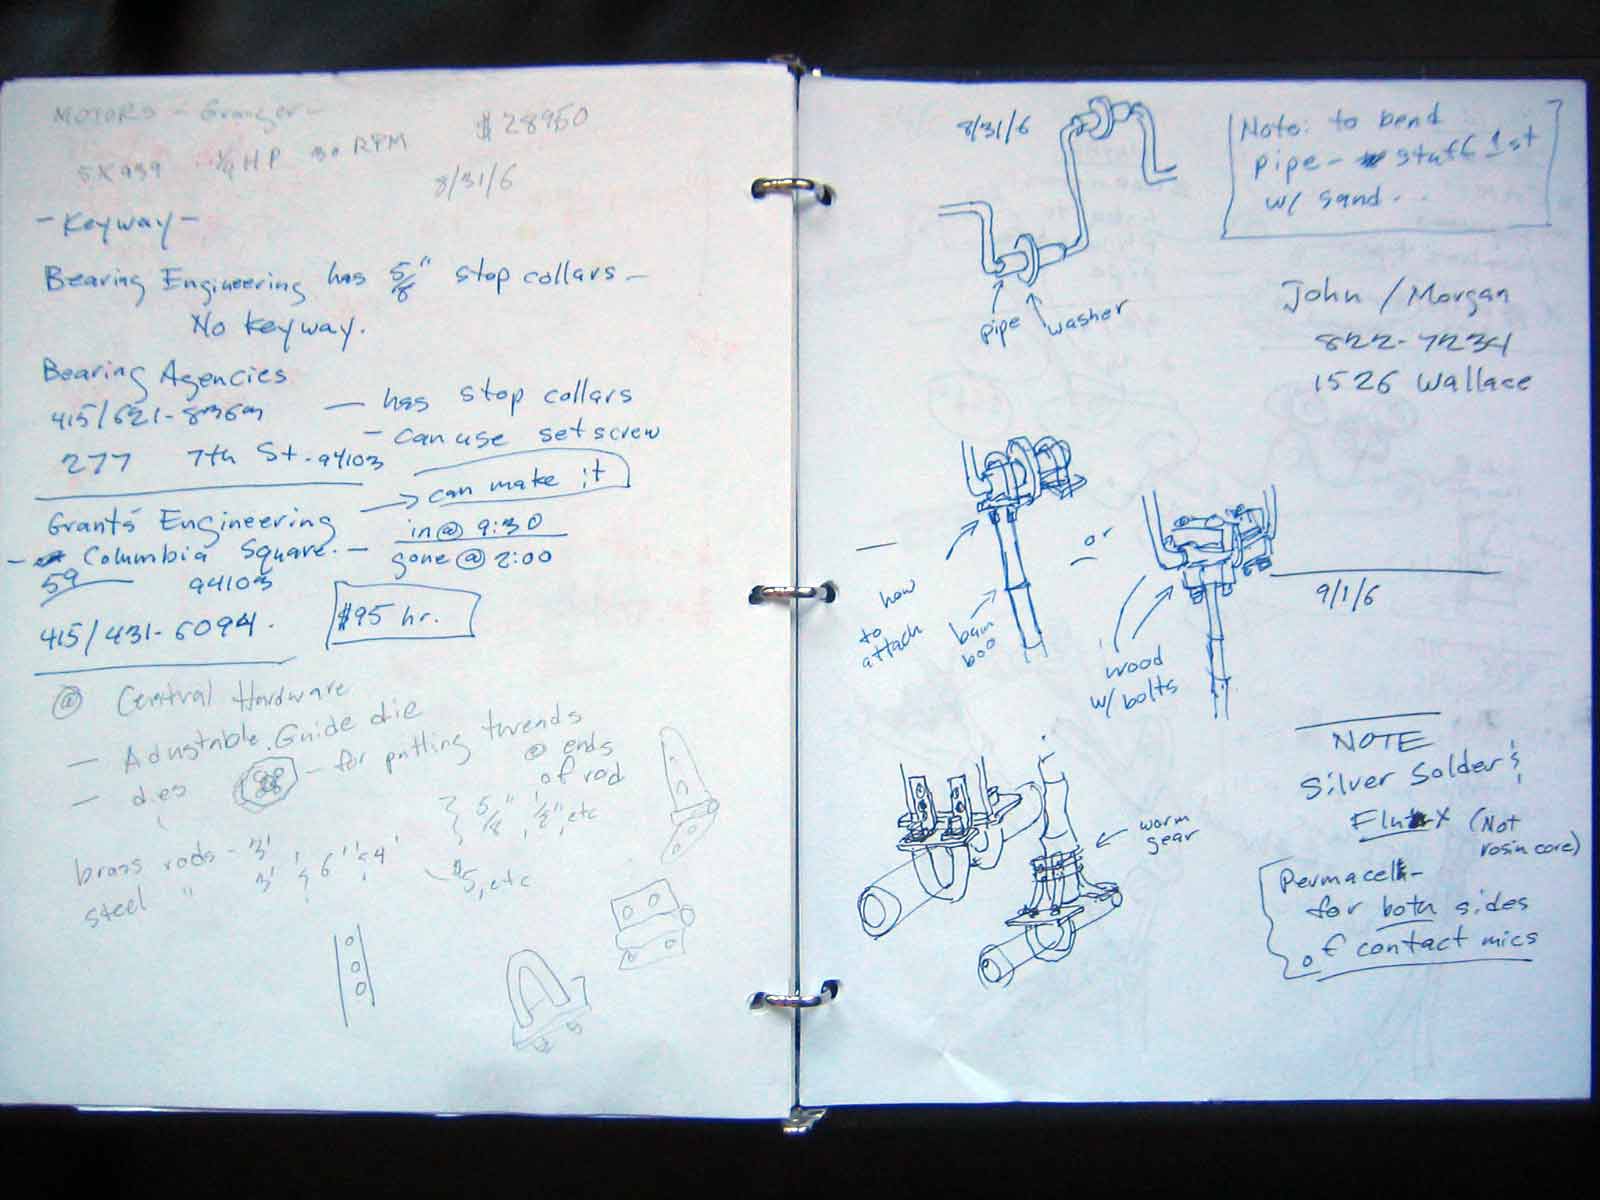 MOTORS - Granger -
$ 28950
5X939 1/4 HP 30 RPM
8/31/6
- Keyway -
Bearing Engineering has 5/8" stop collars -
No Keyway.
Bearing Agencies
415/621- — has stop collars
- can use set screw
277 7th St. 94103
can make it
Grants Engineering
in @ 9:30
- Columbia Square. -
gone @ 2:00
59 94103
$95 hr.
415/431-6094.
@ Central Hardware
- Adustable Guide die
- dies - for putting threads
@ ends
of rod
5/8", 1/2", etc
brass rods - 3', 6' & 4'
steel " 3' $5, etc
8/31/6
Note: to bend
pipe - stuff 1st
w/ sand..
pipe washer
John / Morgan
822-7234
1526 Wallace
or
how
to
attach
bam
boo
wood
w/ bolts
9/1/6
NOTE
Silver Solder &
Flux (Not
rosin core)
worm
gear
Permacel -
for both sides
of contact mics